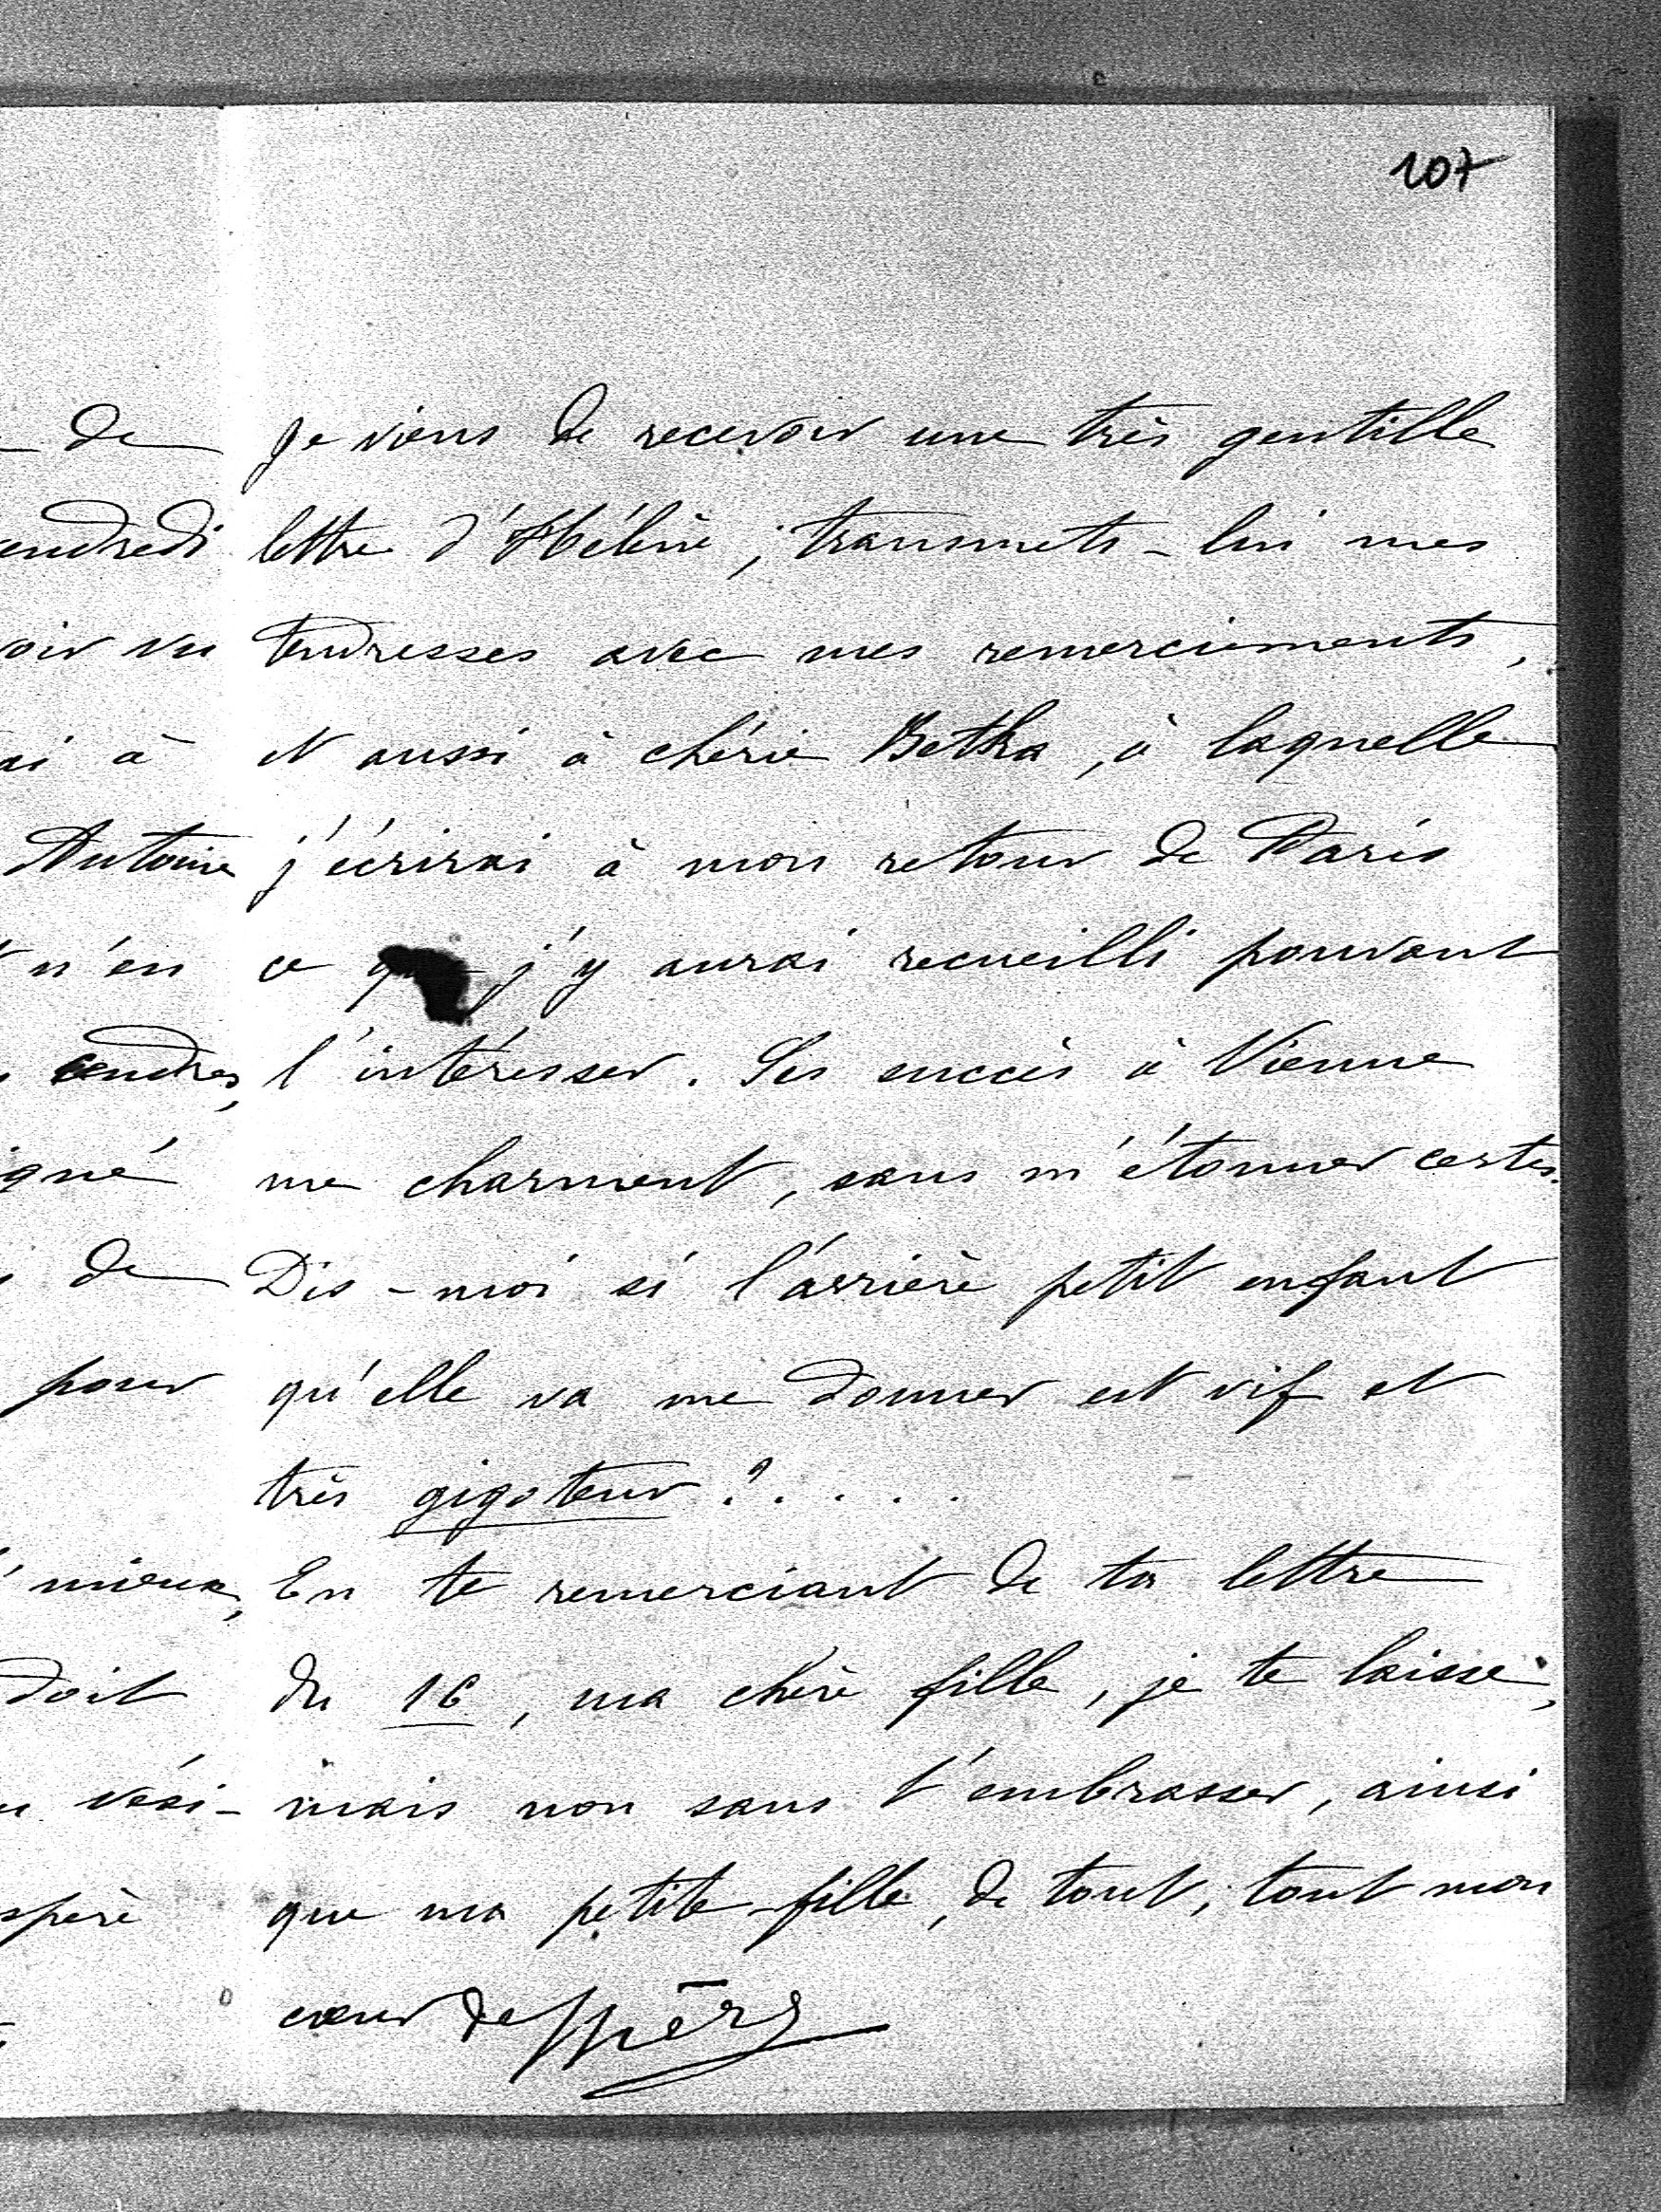 107
de
endredi
voir vu
ai à
Antoine
n'en
cendres,
igné
de
pour
mieux,
doit
vési-
spère
Je viens de recevoir une très gentille
lettre d'Hélène ; transmets-lui mes
tendresses avec mes remerciements,
et aussi à chérie Betka, à laquelle
j'écrirai à mon retour de Paris
ce que j'y aurai recueilli pouvant
l'intéresser. Ses succès à Vienne
me charment, sans m'étonner certes.
Dis-moi si l'arrière petit enfant
qu'elle va me donner est vif et
très gigoteur ?.....
En te remerciant de ta lettre
du 16, ma chère fille, je te laisse,
mais non sans t'embrasser, ainsi
que ma petite-fille, de tout, tout mon
cœur de Mère